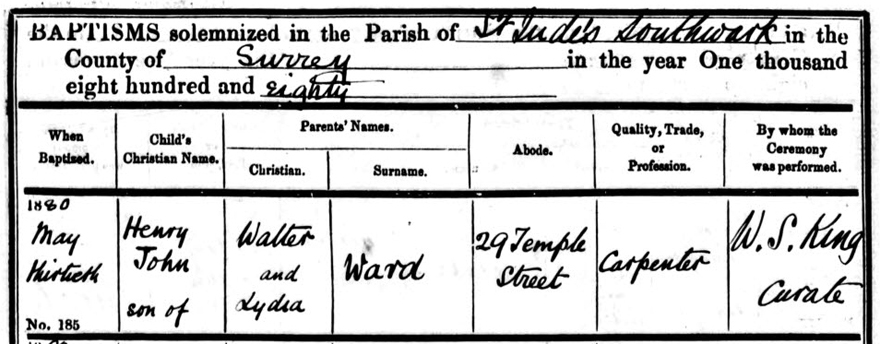 BAPTISMS solemnized in the Parish of St Jude's Southwark in the
County of Surrey in the year One thousand
eight hundred and eighty
When Baptized.
Child's Christian Name.
Parents' Names.
Christian.
Surname.
Abode.
Quality, Trade, or Profession.
By whom the Ceremony was performed.
1880
May
thirtieth
No. 185
Henry
John
son of
Walter
and
Lydia
Ward
29 Temple
Street
Carpenter
W. S. King
Curate